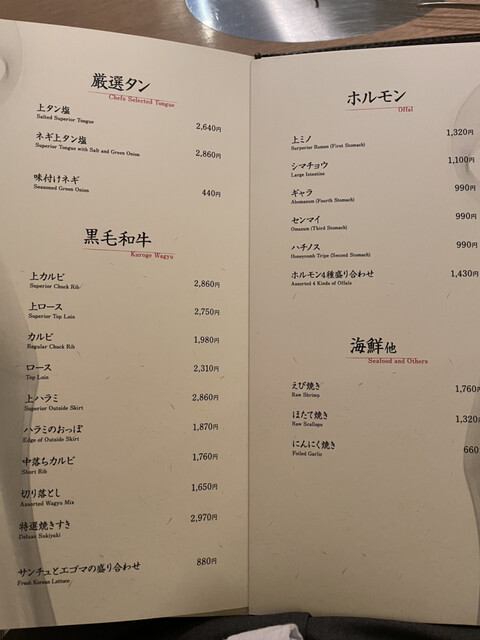 厳選タン
Chefs Selected Tongue
上タン塩 2,640円
Salted Superior Tongue
ネギ上タン塩 2,860円
Superior Tongue with Salt and Green Onion
味付けネギ 440円
Seasoned Green Onion
黒毛和牛
Kuroge Wagyu
上カルビ 2,860円
Superior Chuck Rib
上ロース 2,750円
Superior Top Loin
カルビ 1,980円
Regular Chuck Rib
ロース 2,310円
Top Loin
上ハラミ 2,860円
Superior Outside Skirt
ハラミのおっぽ 1,870円
Edge of Outside Skirt
中落ちカルビ 1,760円
Short Rib
切り落とし 1,650円
Assorted Wagyu Mix
特選焼きすき 2,970円
Deluxe Sukiyaki
サンチュとエゴマの盛り合わせ 880円
Fresh Korean Lettuce
ホルモン
Offal
上ミノ 1,320円
Surperior Rumen (First Stomach)
シマチョウ 1,100円
Large Intestine
ギャラ 990円
Abomasum (Fourth Stomach)
センマイ 990円
Omasum (Third Stomach)
ハチノス 990円
Honeycomb Tripe (Second Stomach)
ホルモン4種盛り合わせ 1,430円
Assorted 4 Kinds of Offals
海鮮他
Seafood and Others
えび焼き 1,760円
Raw Shrimp
ほたて焼き 1,320円
Raw Scallops
にんにく焼き 660
Foiled Garlic